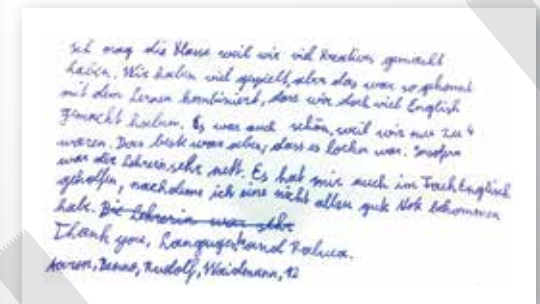 Ich mag die Klasse weil wir viel Kreatives gemacht
haben. Wir haben viel gespielt, aber das war so gekonnt
mit dem Lernen kombiniert, dass wir doch viel English
gemacht haben. Es war auch schön, weil wir nur zu 4
waren. Das beste war aber, dass es locker war. Insofern
war die Lehrerin sehr nett. Es hat mir auch im Fach Englisch
geholfen, nachdem ich eine nicht allzu gute Note bekommen
habe. Die Lehrerin war sehr
Thank you, Languageland Raluca.
Aaron, Benno, Rudolf, Waidmann, 12